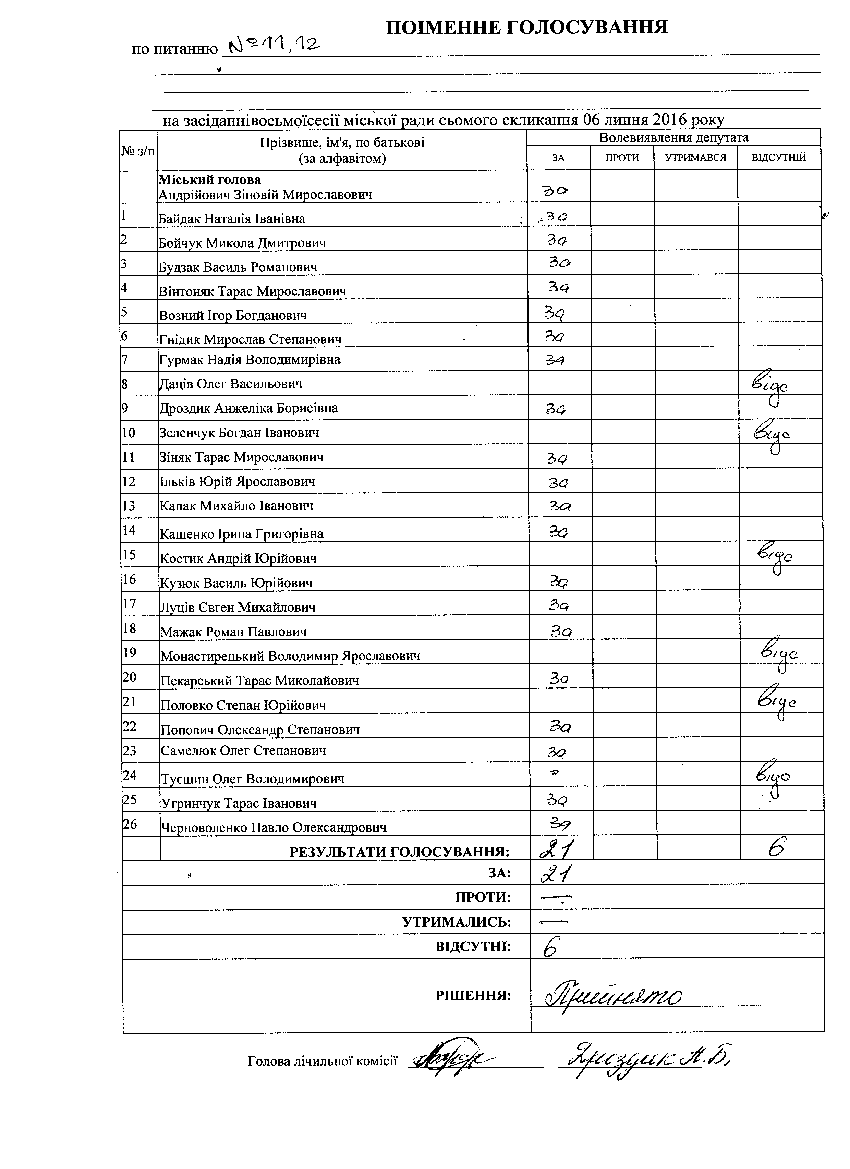 ПОІМЕННЕ ГОЛОСУВАННЯ
по питанню №11,12
на засіданнівосьмоїсесії міської ради сьомого скликання 06 липня 2016 року
№ з/п Прізвище, ім'я, по батькові (за алфавітом) Волевиявлення депутата
ЗА ПРОТИ УТРИМАВСЯ ВІДСУТНІЙ
Міський голова
Андрійович Зіновій Мирославович за
1 Байдак Наталія Іванівна за
2 Бойчук Микола Дмитрович за
3 Будзак Василь Романович за
4 Вінтоняк Тарас Мирославович за
5 Возний Ігор Богданович за
6 Гнідик Мирослав Степанович за
7 Гурмак Надія Володимирівна за
8 Даців Олег Васильович відс
9 Дроздик Анжеліка Борисівна за
10 Зеленчук Богдан Іванович відс
11 Зіняк Тарас Мирославович за
12 Ільків Юрій Ярославович за
13 Капак Михайло Іванович за
14 Кащенко Ірина Григорівна за
15 Костик Андрій Юрійович відс
16 Кузюк Василь Юрійович за
17 Луців Євген Михайлович за
18 Мажак Роман Павлович за
19 Монастирецький Володимир Ярославович відс
20 Пекарський Тарас Миколайович за
21 Половко Степан Юрійович відс
22 Попович Олександр Степанович за
23 Самелюк Олег Степанович за
24 Тусшин Олег Володимирович відс
25 Угринчук Тарас Іванович за
26 Черноволенко Павло Олександрович за
РЕЗУЛЬТАТИ ГОЛОСУВАННЯ: 21 6
ЗА: 21
ПРОТИ: —
УТРИМАЛИСЬ: —
ВІДСУТНІ: 6
РІШЕННЯ: Прийнято
Голова лічильної комісії Дроздик А.Б.